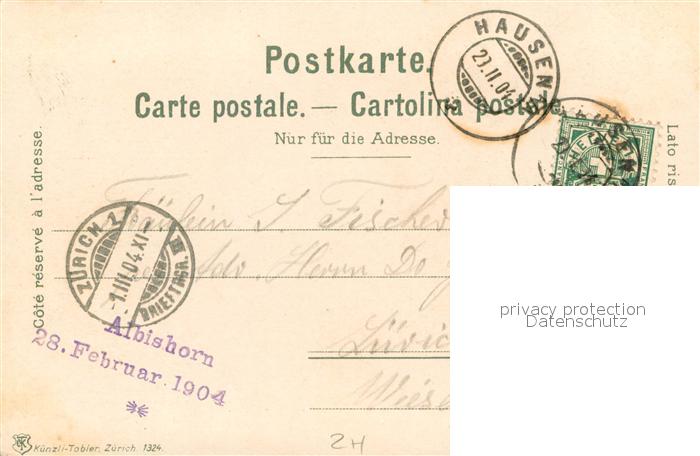 Postkarte.
Carte postale. — Cartolina postale.
Nur für die Adresse.
HAUSEN
Côté réservé à l'adresse.
Lato ris
Fräulein S. Fischer
Herrn Do
ZÜRICH 1
1.III.04.XI
BRIEFTRGR. III
Albishorn
28. Februar 1904
Zürich
Wiese
privacy protection
Datenschutz
Künzli-Tobler, Zürich. 1324.
ZH